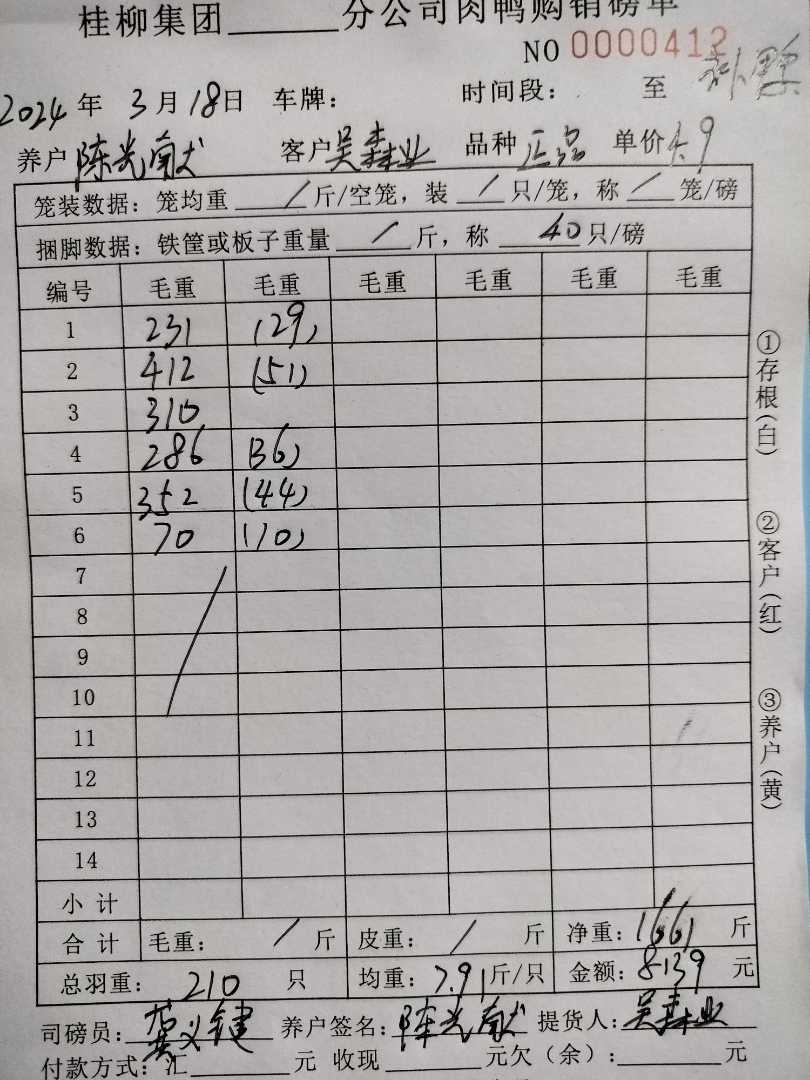 桂柳集团______分公司肉鸭购销磅单
NO 0000412
2024年 3月18日 车牌： 时间段： 至
养户 陈光献 客户 吴森业 品种 正品 单价 4.9
笼装数据：笼均重 / 斤/空笼，装 / 只/笼，称 / 笼/磅
捆脚数据：铁筐或板子重量 / 斤，称 40 只/磅
编号 毛重 毛重 毛重 毛重 毛重 毛重
1 231 (29)
2 412 (51)
3 310
4 286 (36)
5 352 (44)
6 70 (10)
7
8
9
10
11
12
13
14
小计
合计 毛重： / 斤 皮重： / 斤 净重：1661 斤
总羽重： 210 只 均重：7.91斤/只 金额：8139 元
司磅员： 养户签名：陈光献 提货人：吴森业
付款方式：汇______元 收现______元欠（余）：______元
①存根(白)
②客户(红)
③养户(黄)